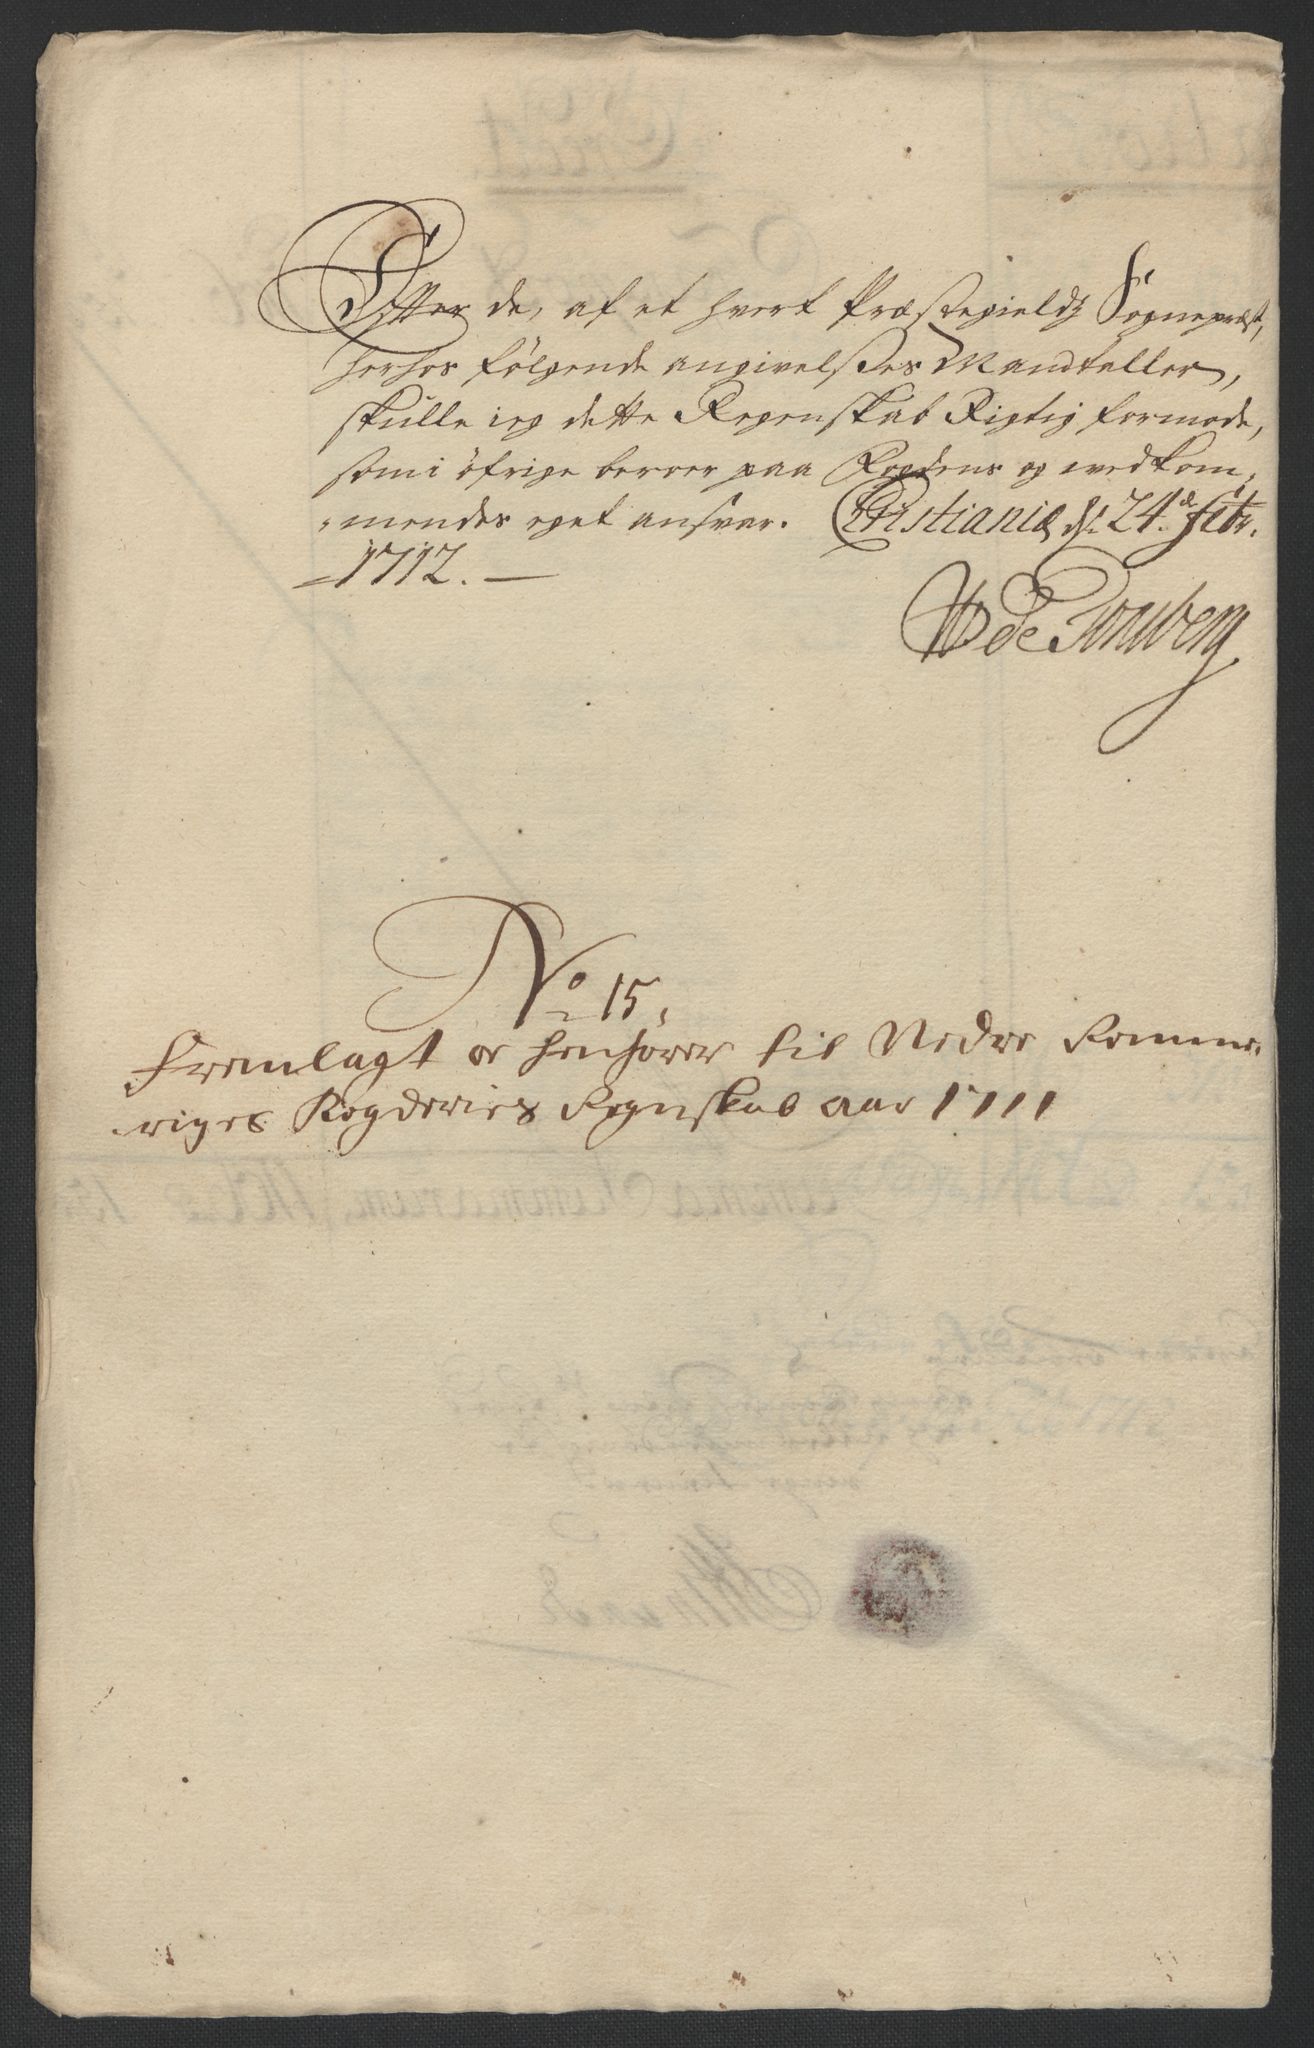 Efter de, af et hvert Præstegields Sognepræst,
herhos følgende angivelses Mandtaller,
skulle ieg dette Regenskab Rigtig formode,
som i øfrige beroer paa Fogdens og vedkom-
mendes eget ansvar. Christianiæ d. 24.de Febr.
1712.
H de
No 15.
Fremlagt oc henhører til Nedre Romme-
riges Fogderies Regnskab aar 1711